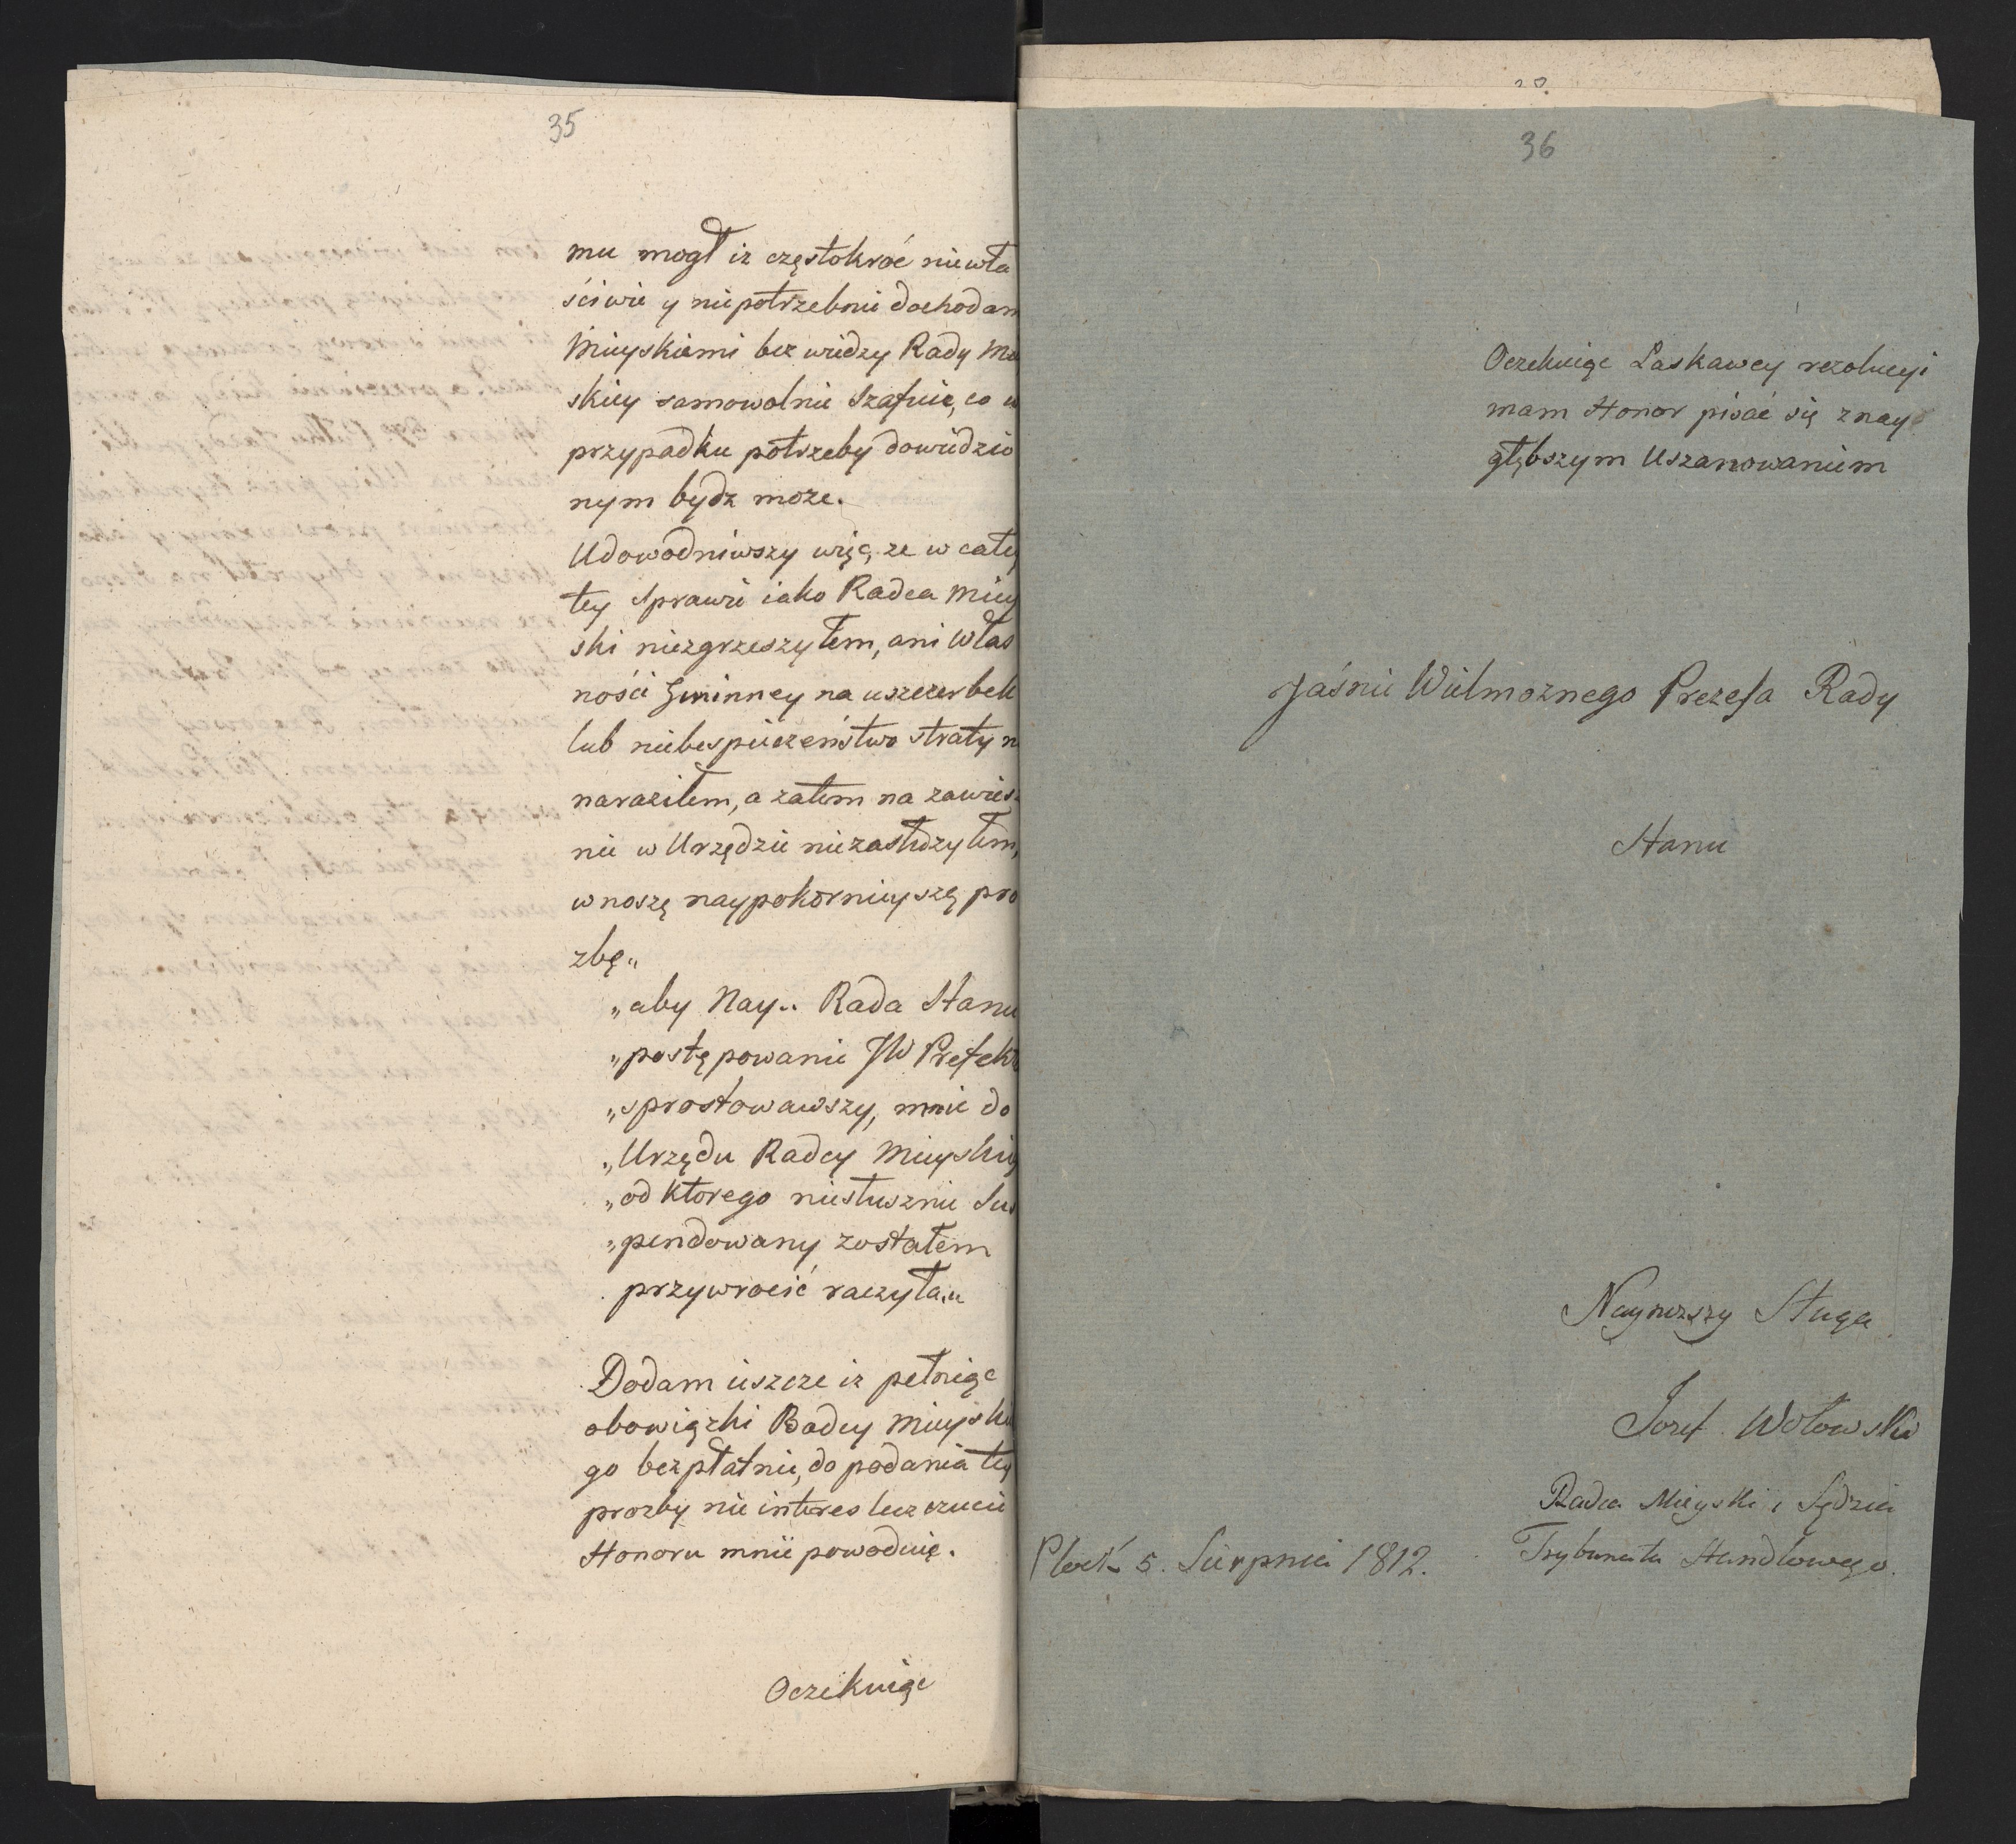 35
mu mogł iz częstokroć niewła
ściwie y niepotrzebnie dochodam
Mieyskiemi bez wiedzy Rady Mie
skiey samowolnie Szafuie, co w
przypadku potrzeby dowiedzio
nym bydz może.
Udowodniwszy więc, ze w całey
tey Sprawie iako Radca Miey
ski niezgrzeszyłem, ani Włas
ności Gminney na uszczerbek
lub niebespieczeństwo straty n
naraziłem, a zatem na zawiesz
nie w Urzędzie niezasłużyłem,
wnoszę naypokornieyszę pro
zbę„
„aby Nay.. Rada Stanu
„postępowanie JW Prefekt
„sprostowawszy, mnie do
„Urzędu Radcy Mieyskieg
„od ktorego niesłusznie Sus
„pendowany zostałem
przywrocić raczyła.„
Dodam ieszcze iz pełniąc
obowiązki Radcy Mieyskie
go bezpłatnie, do podania tey
prozby nie interes lecz czucie
Honoru mnie powoduię.
Oczekuiąc
20
36
Oczekuiąc Łaskawey rezolucyi
mam Honor pisać się z nay
głębszym Uszanowaniem
Jaśnie Wielmoznego Prezesa Rady
Stanu
Nayniższy Sługa
Jozef Wołowski
Radca Mieyski i Sędzia
Trybunału Handlowego.
Płock 5. Sierpnia 1812.